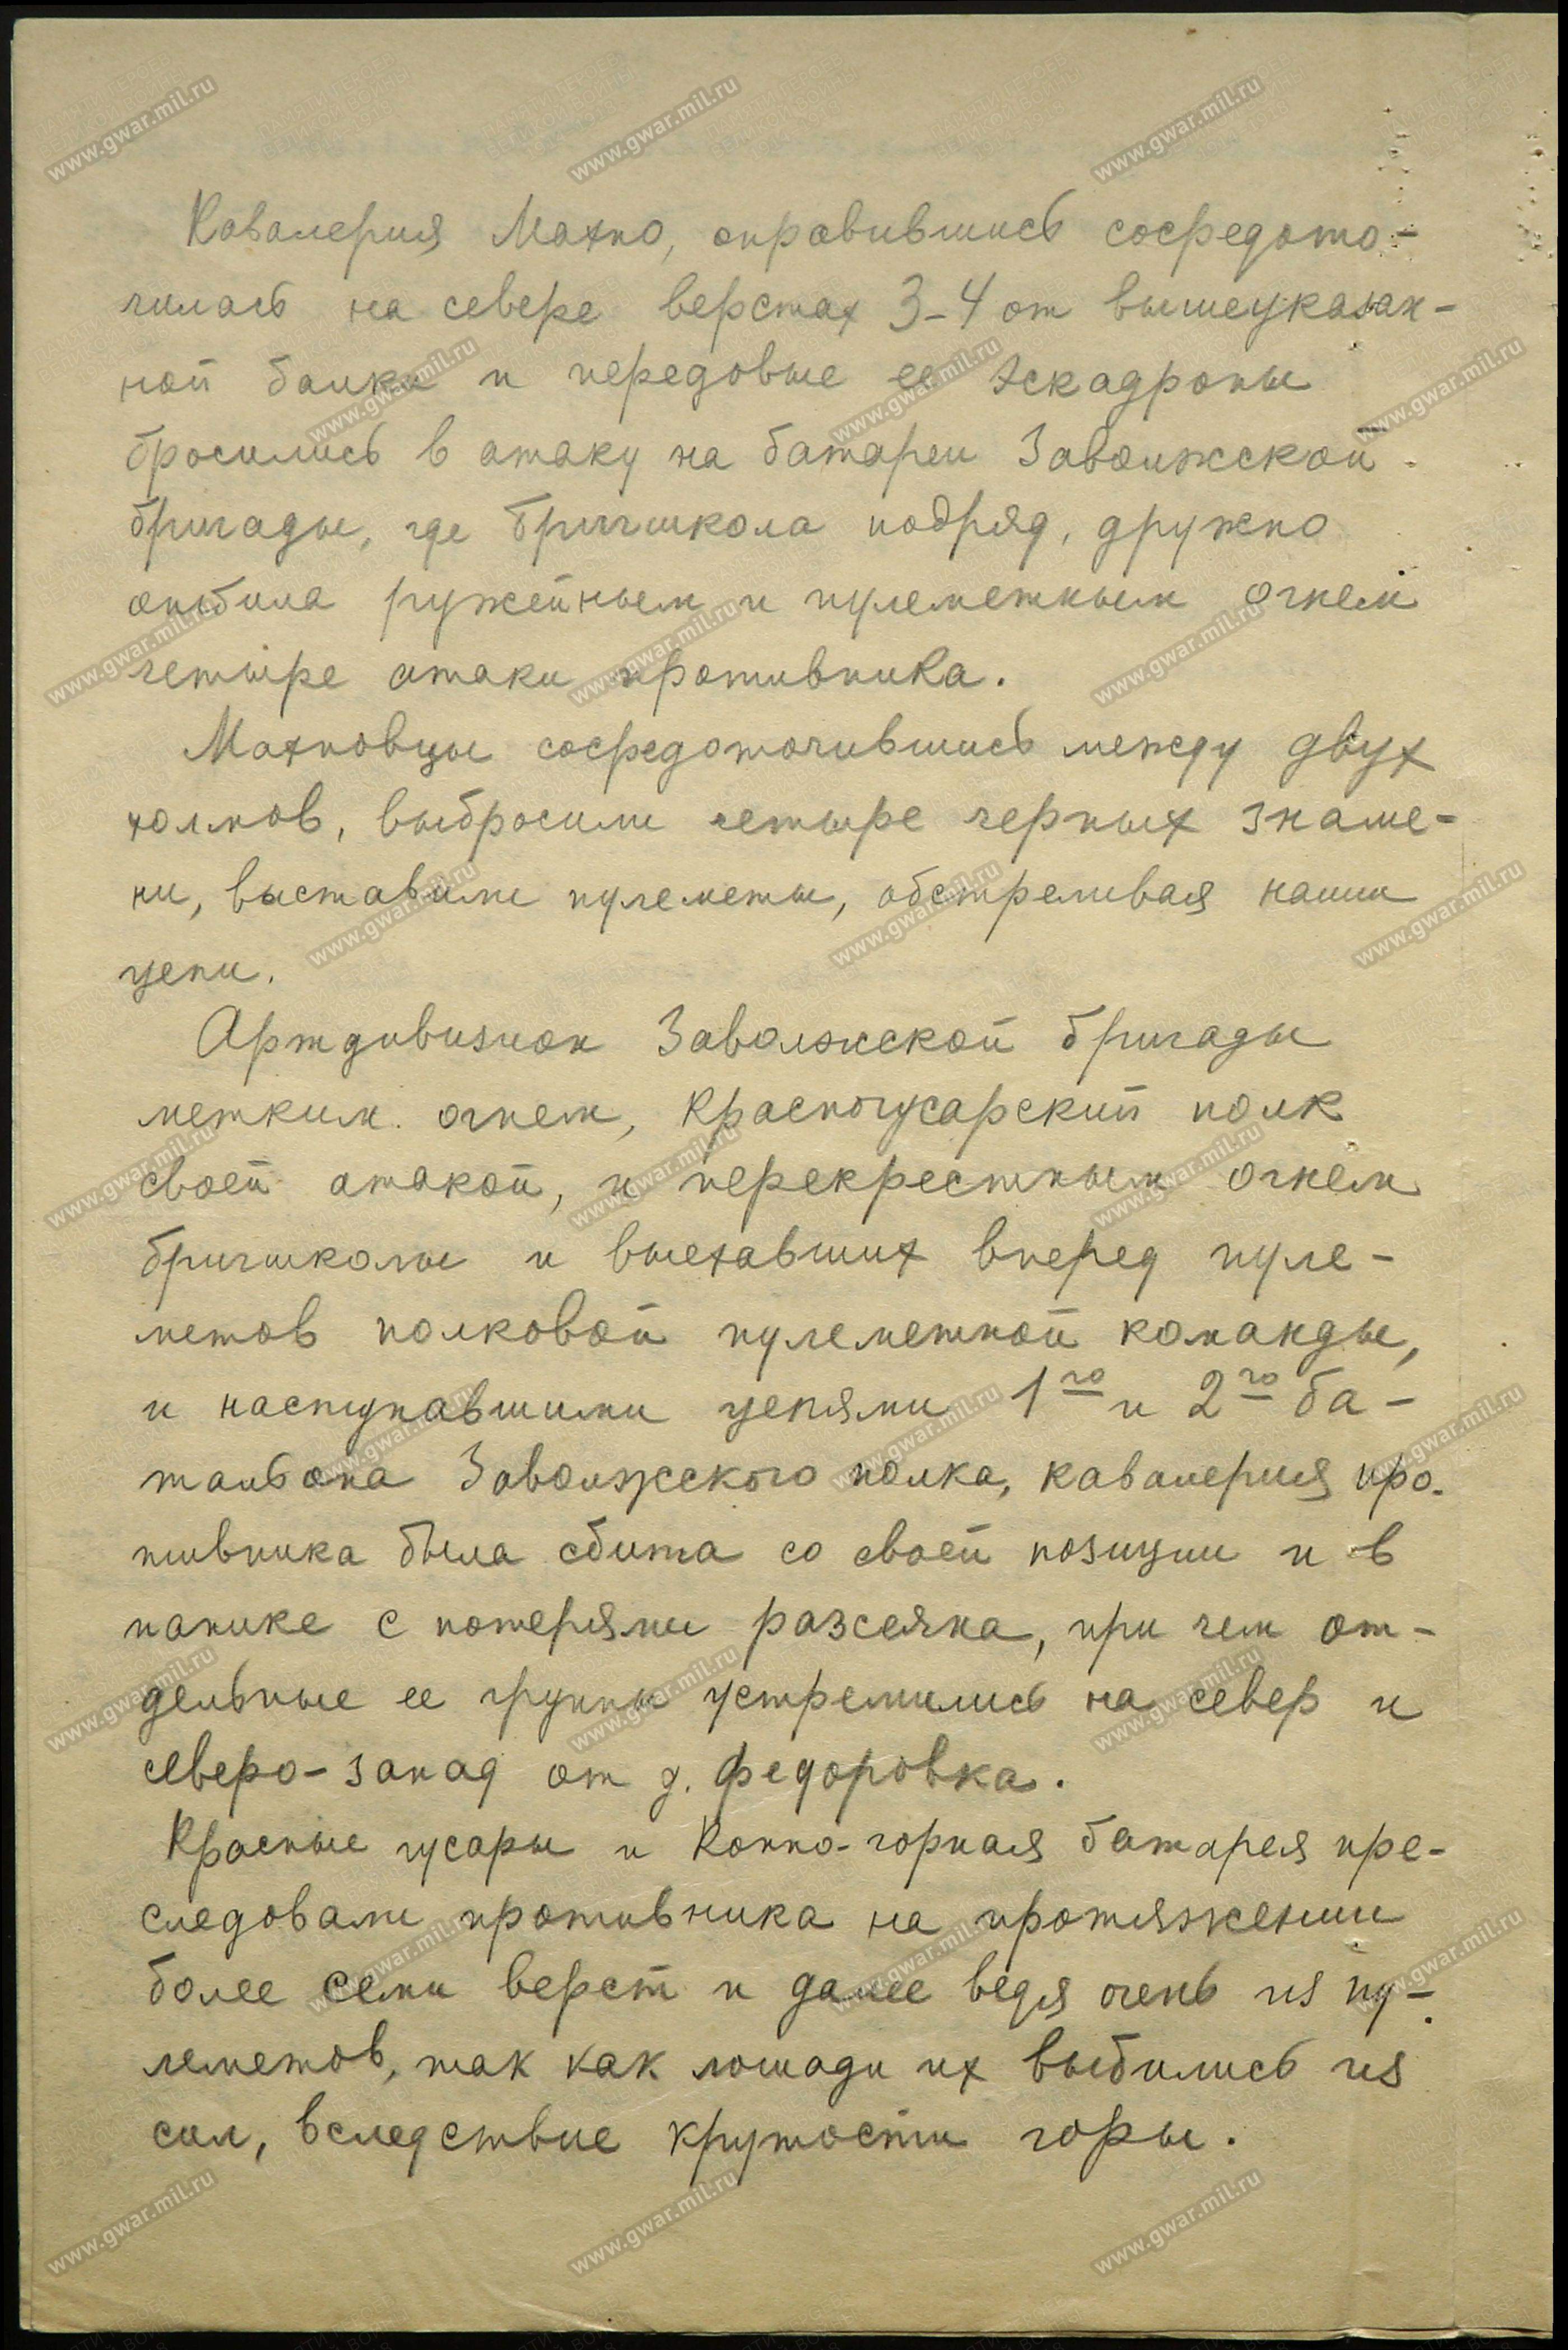 Кавалерия Махно, оправившись сосредото-
чилась на севере верстах 3-4 от вышеуказан-
ной балки и передовые ее эскадроны
бросились в атаку на батареи Заволжской
бригады, где Бригшкола подряд, дружно
отбила ружейным и пулеметным огнем
четыре атаки противника.
Махновцы сосредоточившись между двух
холмов, выбросили четыре черных знаме-
ни, выставили пулеметы, обстреливая наши
цепи.
Артдивизион Заволжской бригады
метким огнем, Красногусарский полк
своей атакой, и перекрестным огнем
бригшколы и выехавших вперед пуле-
метов полковой пулеметной команды,
и наступавшими цепями 1го и 2го ба-
тальона Заволжского полка, кавалерия про-
тивника была сбита со своей позиции и в
панике с потерями разсеяна, при чем от-
дельные ее группы устремились на север и
северо-запад от д. Федоровка.
Красные гусары и Конно-горная батарея пре-
следовали противника на протяжении
более семи верст и далее ведя огень из пу-
леметов, так как лошади их выбились из
сил, вследствие крутости горы.
www.gwar.mil.ru